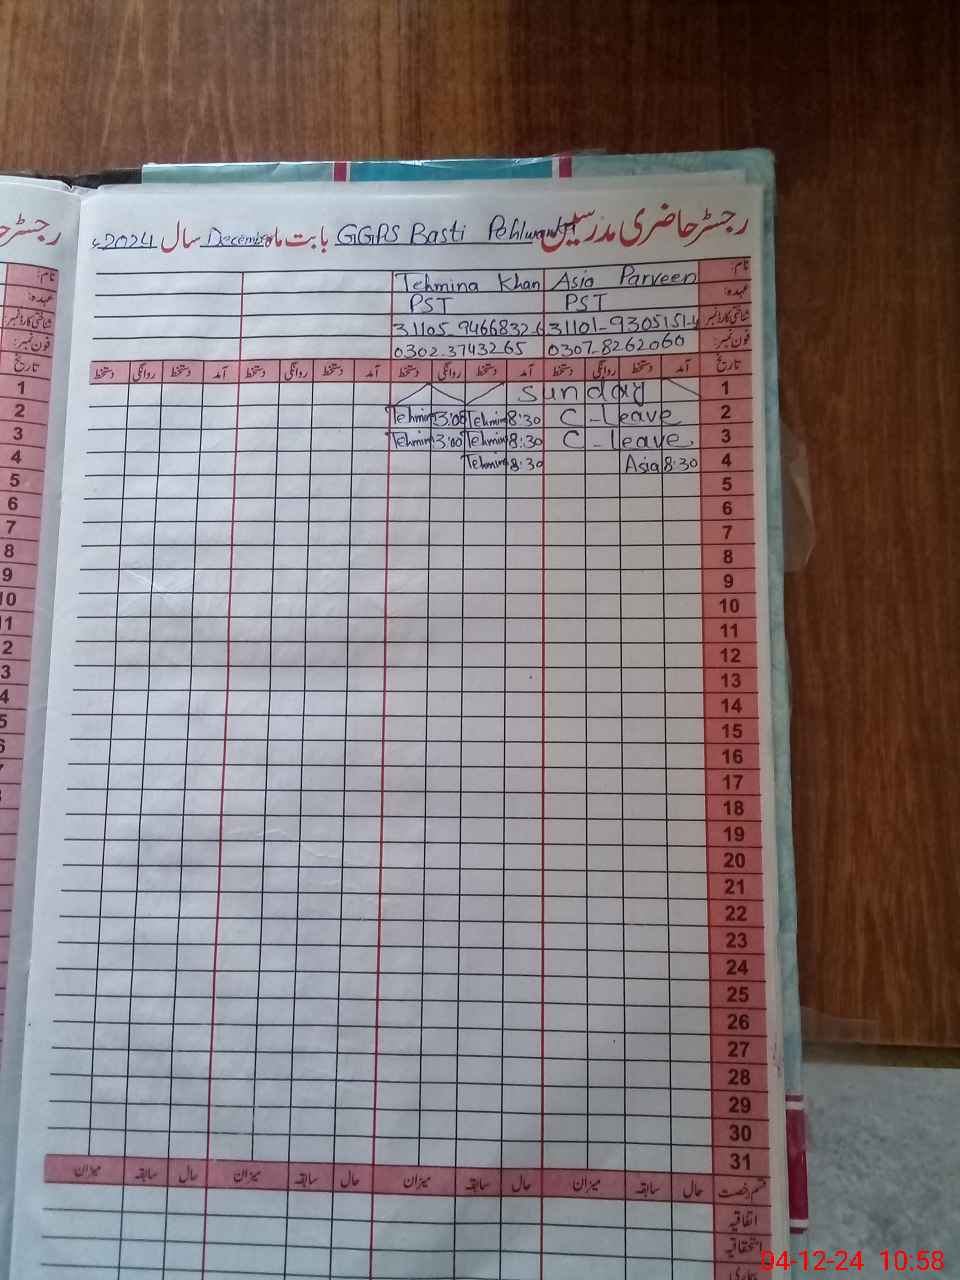 رجسٹر حاضری مدرسین GGPS Basti Pehlwan بابت ماہ December سال 2024ء
نام: Asia Parveen Tehmina Khan
عہدہ: PST PST
شناختی کارڈ نمبر 31101-9305151-4 31105-9466832-6
فون نمبر: 0307-8262060 0302-3743265
تاریخ آمد دستخط روانگی دستخط آمد دستخط روانگی دستخط آمد دستخط روانگی دستخط آمد دستخط روانگی دستخط
1 Sunday
2 C-Leave 8:30 Tehmin 3:00 Tehmin
3 C-leave 8:30 Tehmin 3:00 Tehmin
4 8:30 Asia 8:30 Tehmin
5
6
7
8
9
10
11
12
13
14
15
16
17
18
19
20
21
22
23
24
25
26
27
28
29
30
31
قسم رخصت حال سابقہ میزان حال سابقہ میزان حال سابقہ میزان حال سابقہ میزان
اتفاقیہ
استحقاقیہ
04-12-24 10:58